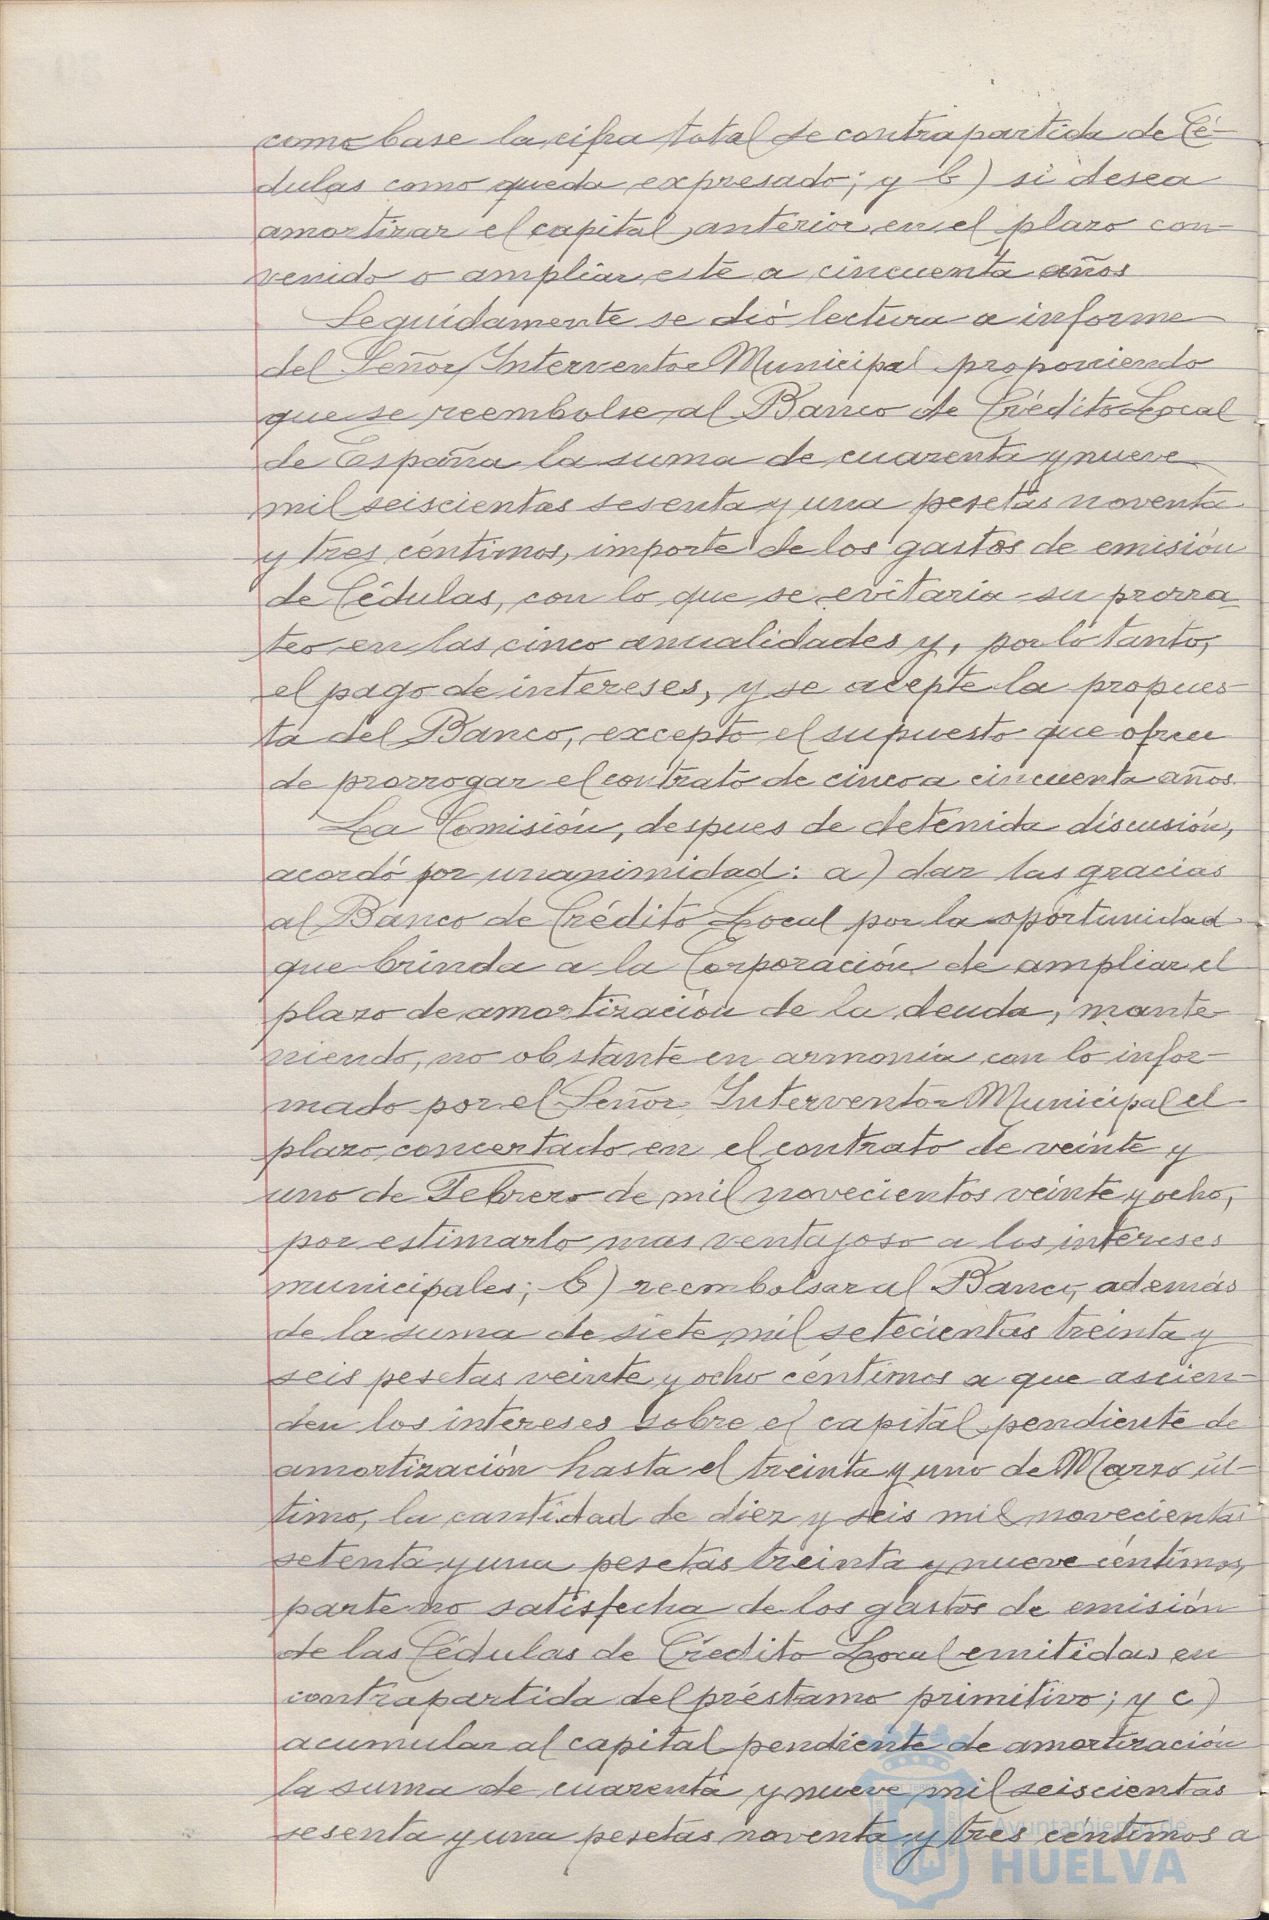 como base la cifra total de contrapartida de Cé-
dulas como queda expresado; y b) si desea
amortizar el capital anterior en el plazo con-
venido o ampliar este a cincuenta años
Seguidamente se dió lectura a informe
del Señor Interventor Municipal proponiendo
que se reembolse al Banco de Crédito Local
de España la suma de cuarenta y nueve
mil seiscientas sesenta y una pesetas noventa
y tres céntimos, importe de los gastos de emisión
de Cédulas, con lo que se evitaria su prorra-
teo en las cinco anualidades y, por lo tanto,
el pago de intereses, y se acepte la propues-
ta del Banco, excepto el supuesto que ofrece
de prorrogar el contrato de cinco a cincuenta años.
La Comisión, despues de detenida discusión,
acordó por unanimidad: a) dar las gracias
al Banco de Crédito Local por la oportunidad
que brinda a la Corporación de ampliar el
plazo de amortización de la deuda, mante-
niendo, no obstante en armonia con lo infor-
mado por el Señor Interventor Municipal el
plazo concertado en el contrato de veinte y
uno de Febrero de mil novecientos veinte y ocho,
por estimarlo mas ventajoso a los intereses
municipales; b) reembolsar al Banco, además
de la suma de siete mil setecientas treinta y
seis pesetas veinte y ocho céntimos a que ascien-
den los intereses sobre el capital pendiente de
amortización hasta el treinta y uno de Marzo úl-
timo, la cantidad de diez y seis mil novecientas
setenta y una pesetas treinta y nueve céntimos,
parte no satisfecha de los gastos de emisión
de las Cédulas de Crédito Local emitidas en
contrapartida del préstamo primitivo; y c)
acumular al capital pendiente de amortización
la suma de cuarenta y nueve mil seiscientas
sesenta y una pesetas noventa y tres centimos a
Ayuntamiento de
HUELVA